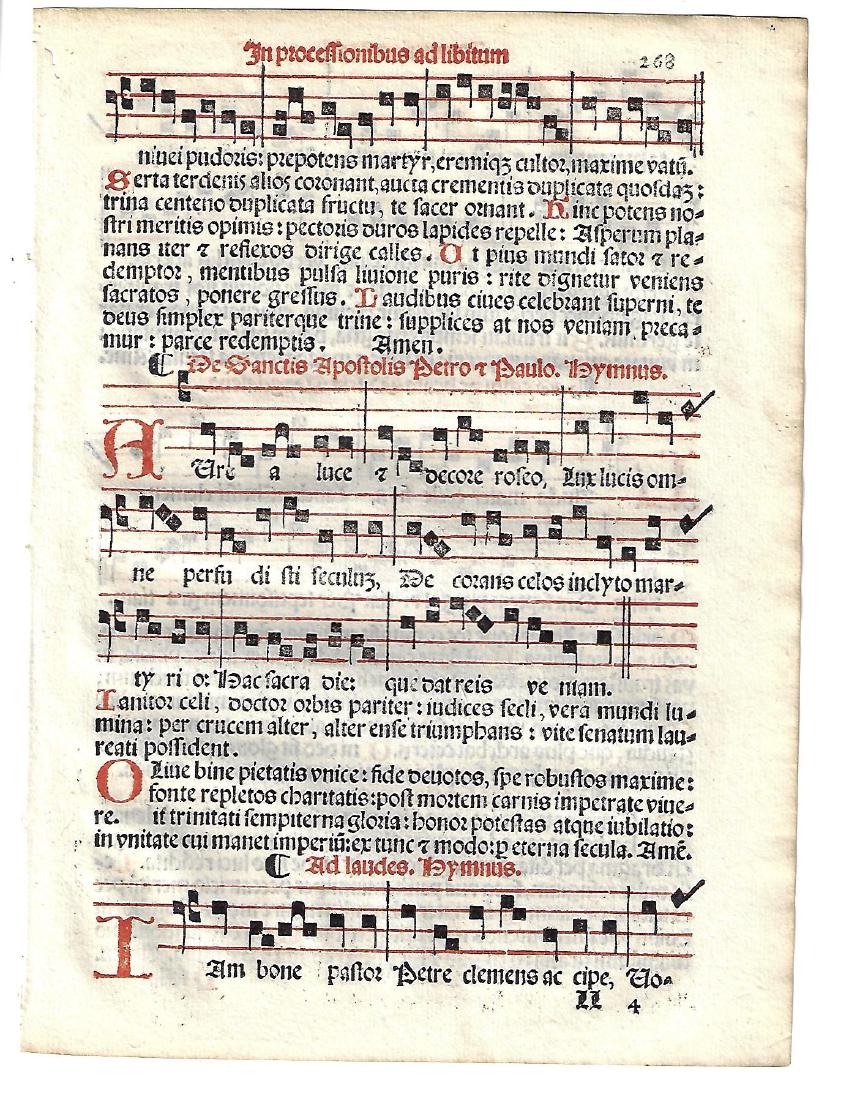 In processionibus ad libitum 268
niuei pudoris: prepotens martyr, eremiqꝫ cultor, maxime vatū.
Serta terdenis alios coronant, aucta crementis duplicata quosdaꝫ:
trina centeno duplicata fructu, te sacer ornant. Hinc potens no-
stri meritis opimis: pectoris duros lapides repelle: Asperum pla-
nans iter ⁊ reflexos dirige calles. Ut pius mundi sator ⁊ re-
demptor, mentibus pulsa liuione puris: rite dignetur veniens
sacratos, ponere gressus. Laudibus ciues celebrant superni, te
deus simplex pariterque trine: supplices at nos veniam preca-
mur: parce redemptis. Amen.
De Sanctis Apostolis Petro ⁊ Paulo. Hymnus.
AUre a luce ⁊ decore roseo, Lux lucis om-
ne perfu di sti seculuꝫ, De corans celos inclyto mar-
ty ri o: Hac sacra die: que dat reis ve niam.
Ianitor celi, doctor orbis pariter: iudices secli, vera mundi lu-
mina: per crucem alter, alter ense triumphans: vite senatum lau-
reati possident.
OLiue bine pietatis vnice: fide deuotos, spe robustos maxime:
fonte repletos charitatis: post mortem carnis impetrate viue-
re. it trinitati sempiterna gloria: honor potestas atque iubilatio:
in vnitate cui manet imperiū: ex tunc ⁊ modo: ꝑ eterna secula. Amē.
Ad laudes. Hymnus.
IAm bone pastor Petre clemens ac cipe, Uo-
LL 4